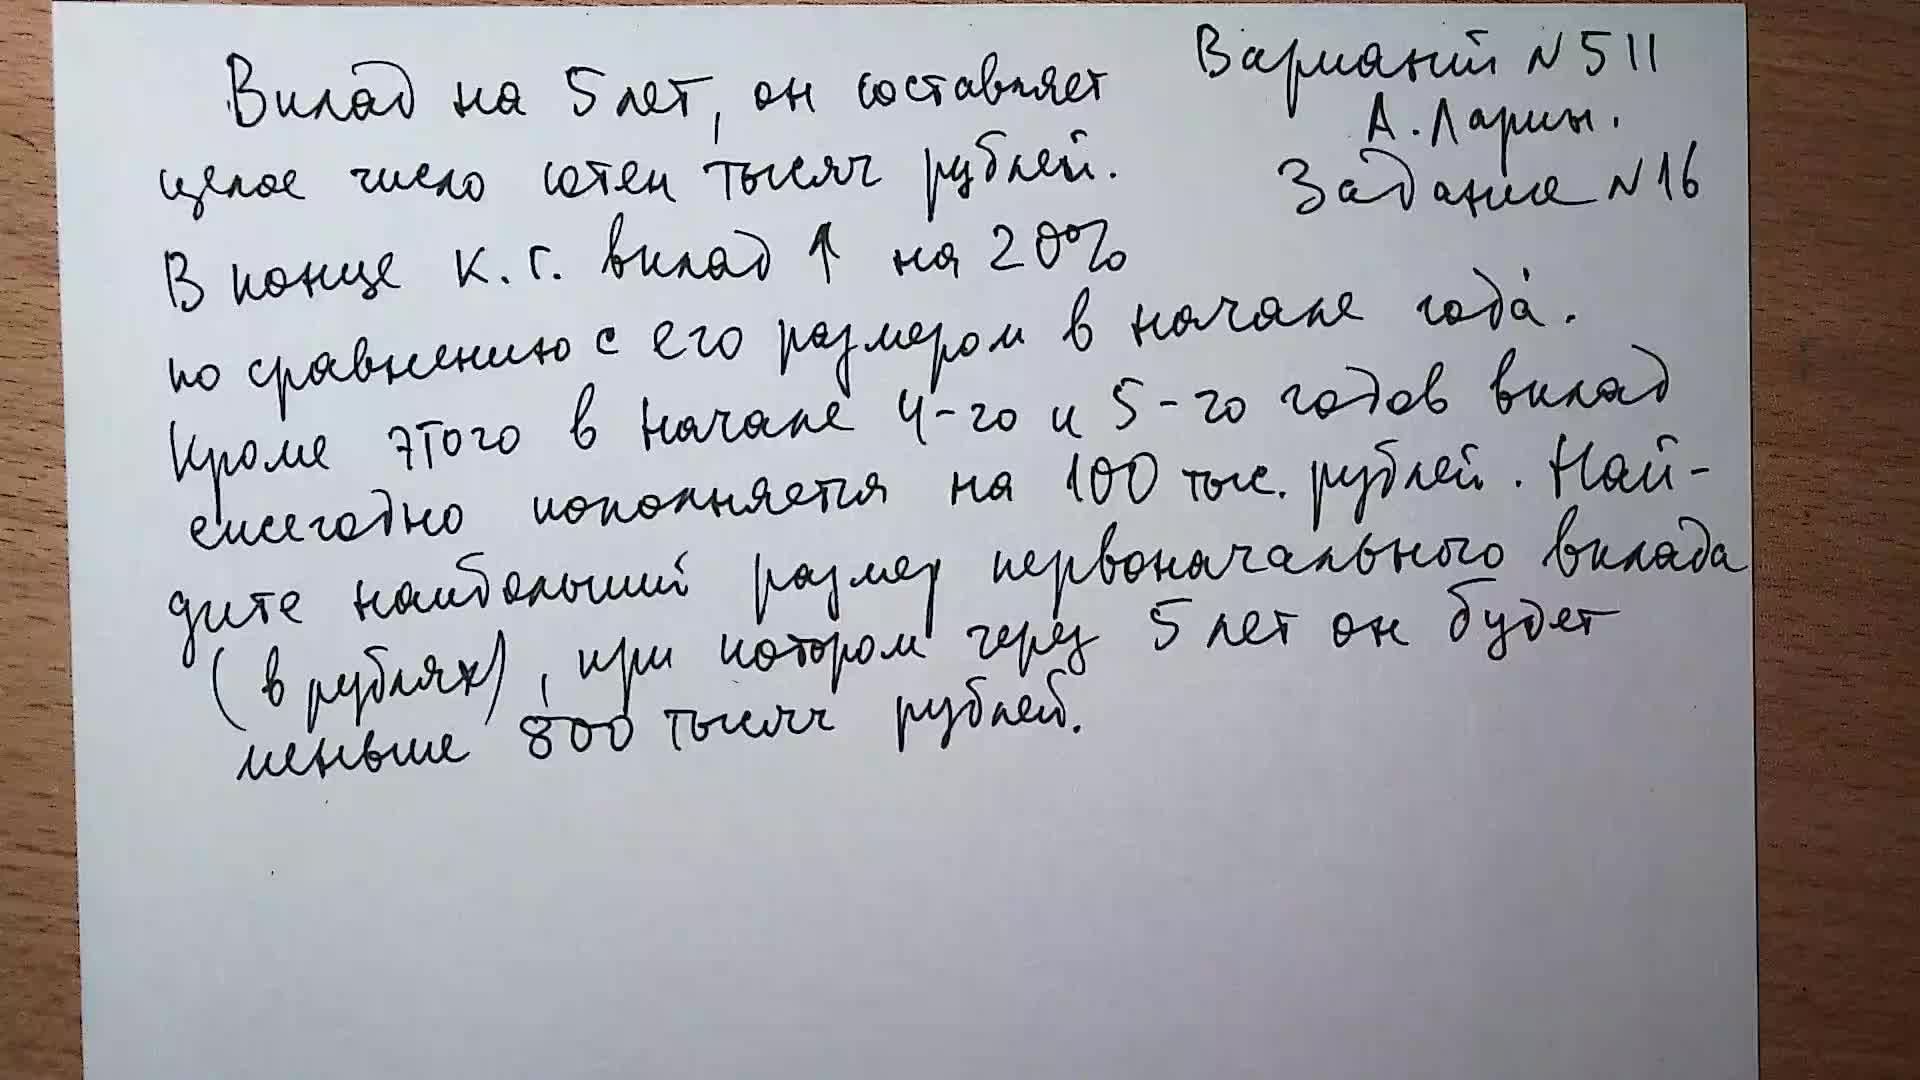 Вклад на 5 лет, он составляет
целое число сотен тысяч рублей.
В конце к.г. вклад ↑ на 20%
по сравнению с его размером в начале года.
Кроме этого в начале 4-го и 5-го годов вклад
ежегодно пополняется на 100 тыс. рублей. Най-
дите наибольший размер первоначального вклада
(в рублях), при котором через 5 лет он будет
меньше 800 тысяч рублей.
Вариант N 511
А. Ларин.
Задание N 16